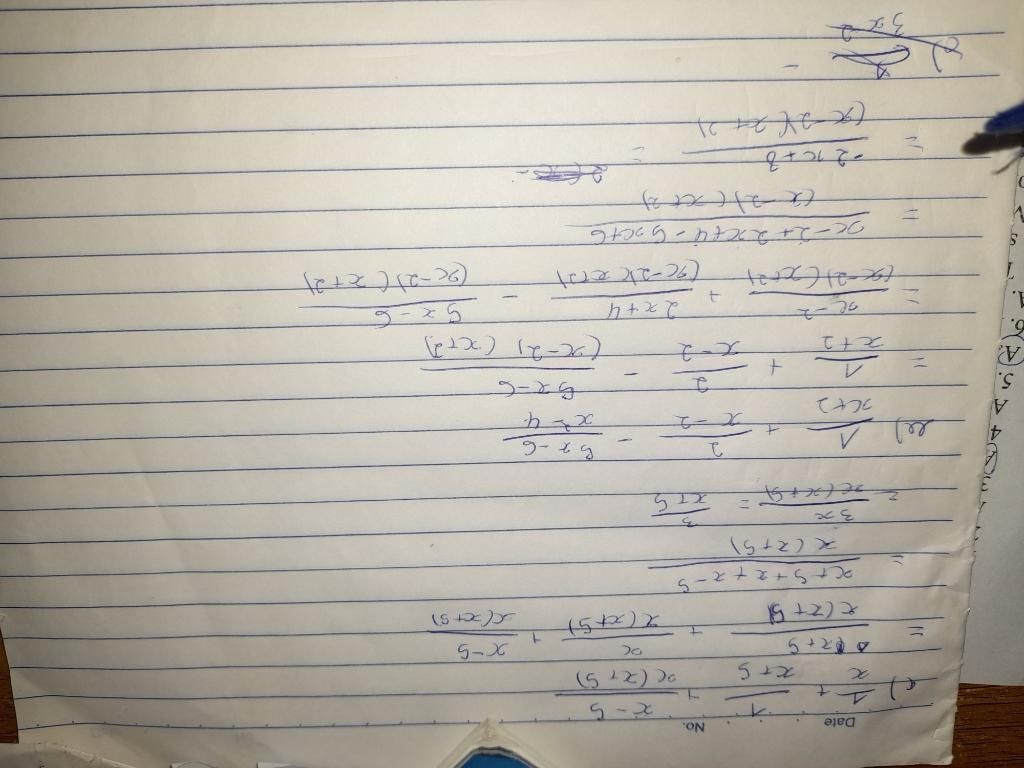 Date No.
c) 1/x + 1/(x+5) + (x-5)/(x(x+5))
= (x+5)/(x(x+5)) + x/(x(x+5)) + (x-5)/(x(x+5))
= (x+5+x+x-5)/(x(x+5))
= 3x/(x(x+5)) = 3/(x+5)
1/(x+2) + 2/(x-2) - (5x-6)/(x²-4)
= 1/(x+2) + 2/(x-2) - (5x-6)/((x-2)(x+2))
= (x-2)/((x-2)(x+2)) + (2x+4)/((x-2)(x+2)) - (5x-6)/((x-2)(x+2))
= (x-2+2x+4-5x+6)/((x-2)(x+2))
= (-2x+8)/((x-2)(x+2)) =
3x-2
4 A
5. A.
6. A.